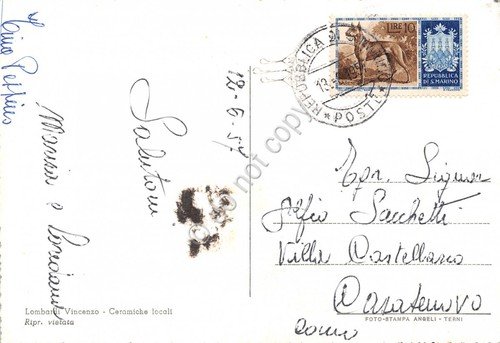 Zio Peppino
12-5-57
Saluti
Marisa e Luciano
Lombardi Vincenzo - Ceramiche locali
Ripr. vietata
REPUBBLICA
POSTE
LIRE 10
REPUBBLICA
DI S. MARINO
Egr. Signor
Sacchetti
Villa Castellano
Casatenovo
Como
FOTO-STAMPA ANGELI - TERNI
do not copy